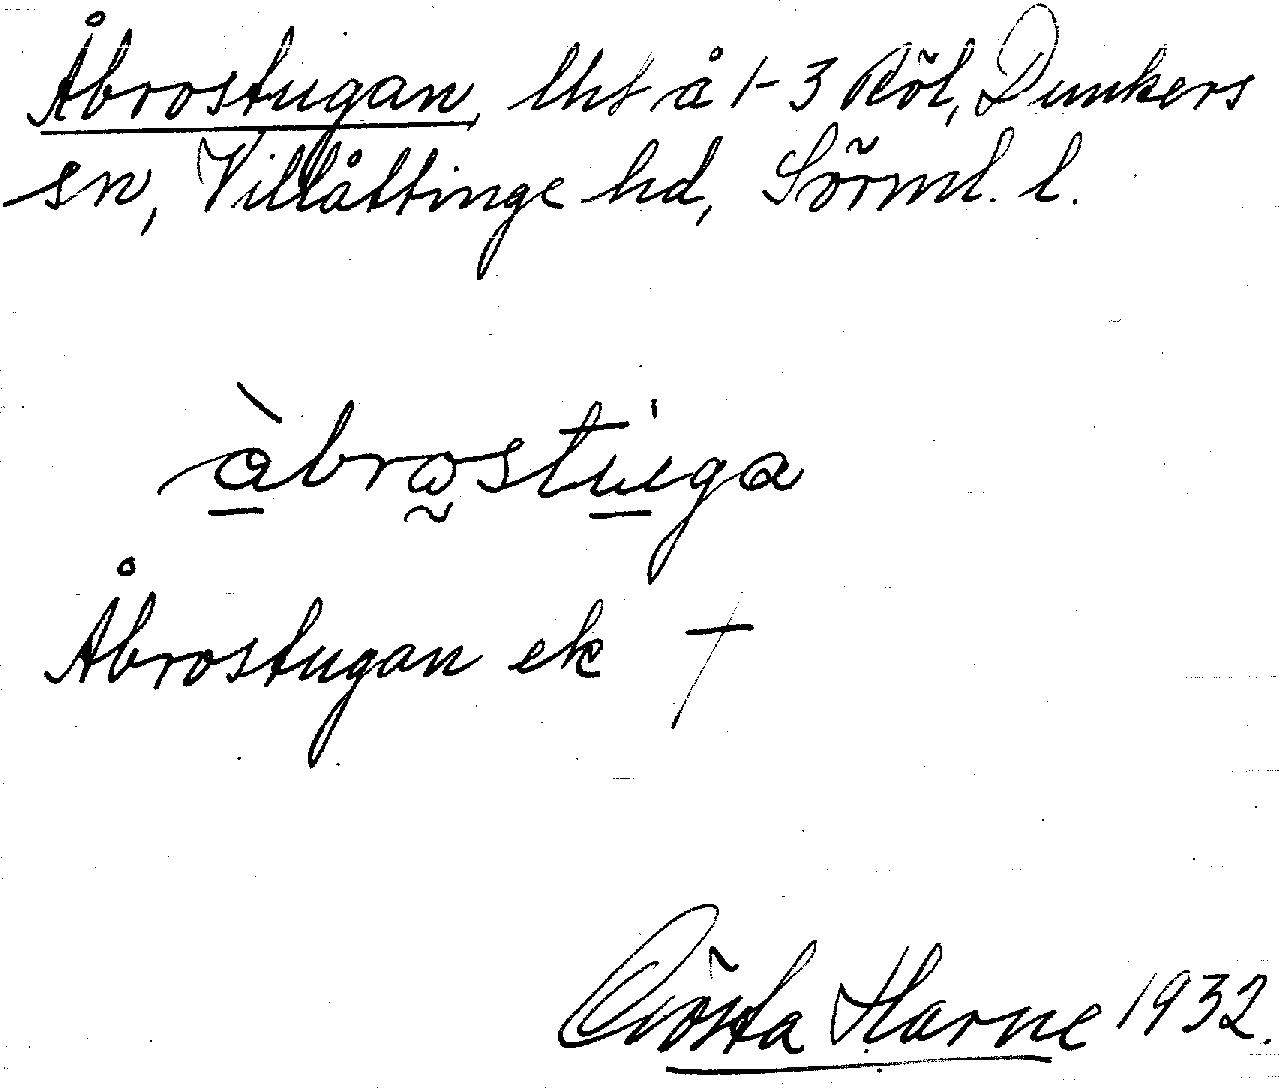 Åbrostugan, lht å 1-3 Röl, Dunkers
sn, Villåttinge hd, Sörml. l.
àbrostuga
Åbrostugan ek †
Gösta Harne 1932.